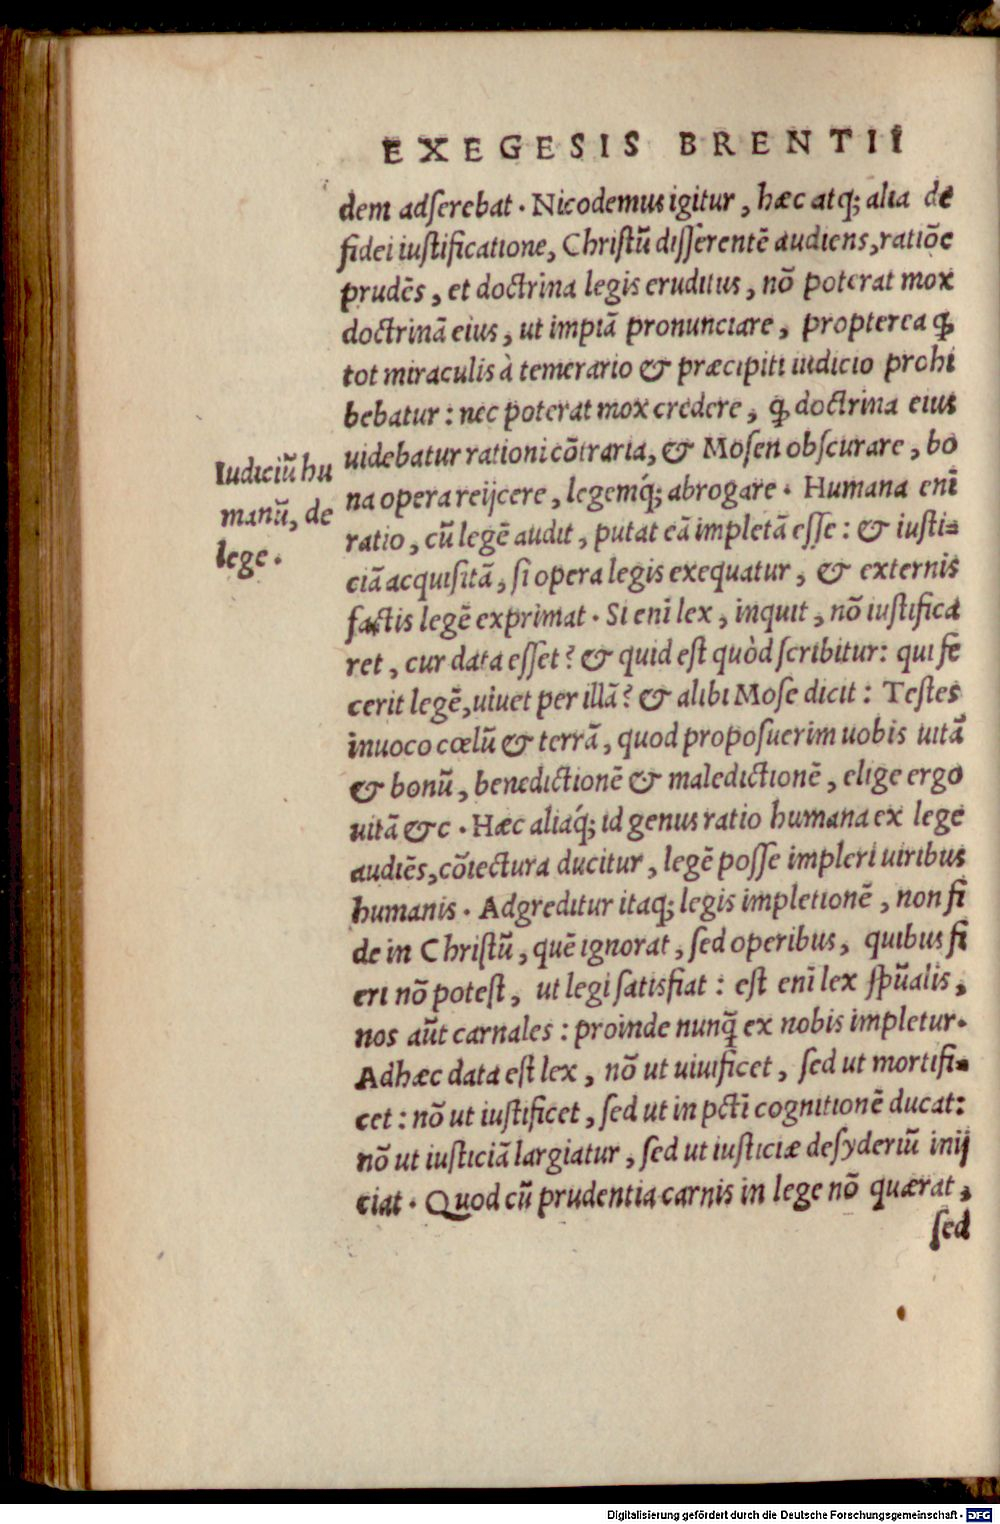 EXEGESIS BRENTII
dem adſerebat. Nicodemus igitur, hæc atq; alia de
fidei iuſtificatione, Chriſtū diſſerentē audiens, ratiōe
prudēs, et doctrina legis eruditus, nō poterat mox
doctrinā eius, ut impiā pronunciare, propterea ꝙ
tot miraculis à temerario & præcipiti iudicio prohi
bebatur: nec poterat mox credere, ꝙ doctrina eius
uidebatur rationi cōtraria, & Moſen obſcurare, bo
na opera reijcere, legemq́; abrogare. Humana enī
ratio, cū legē audit, putat eā impletā eſſe: & iuſti=
ciā acquiſitā, ſi opera legis exequatur, & externis
factis legē exprimat. Si enī lex, inquit, nō iuſtifica
ret, cur data eſſet? & quid eſt quòd ſcribitur: qui fe
cerit legē, uiuet per illā? & alibi Moſe dicit: Teſtes
inuoco cœlū & terrā, quod propoſuerim uobis uitā
& bonū, benedictionē & maledictionē, elige ergo
uitā &c. Hæc aliaq́; id genus ratio humana ex lege
audiēs, cōiectura ducitur, legē poſſe impleri uiribus
humanis. Adgreditur itaq; legis impletionē, non fi
de in Chriſtū, quē ignorat, ſed operibus, quibus fi
eri nō poteſt, ut legi ſatisfiat: eſt enī lex ſpūalis,
nos aūt carnales: proinde nunq̄ ex nobis impletur.
Adhæc data eſt lex, nō ut uiuificet, ſed ut mortifi=
cet: nō ut iuſtificet, ſed ut in pctī cognitionē ducat:
nō ut iuſticiā largiatur, ſed ut iuſticiæ deſyderiū inij
ciat. Quod cū prudentia carnis in lege nō quærat,
ſed
Iudiciū hu
manū, de
lege.
Digitalisierung gefördert durch die Deutsche Forschungsgemeinschaft - DFG